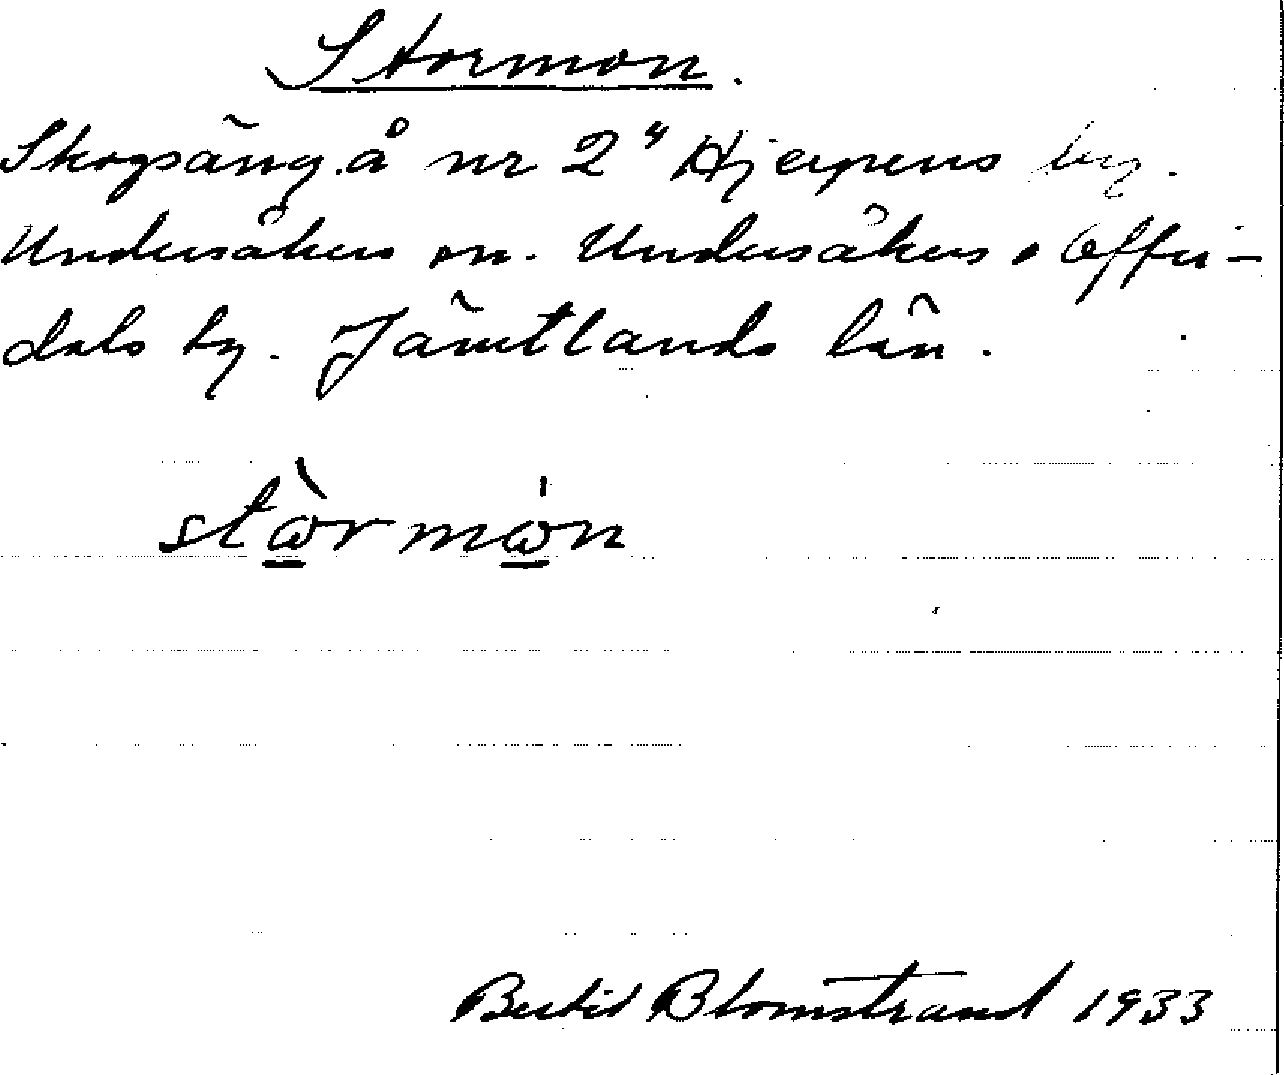 Stormon.
Skogsäng å nr 2" Hjerpens by.
Undersåkers sn. Undersåkers o Offer-
dals tg. Jämtlands län.
stꞷ̀rmꞷ́n
Bertil Blomstrand 1933